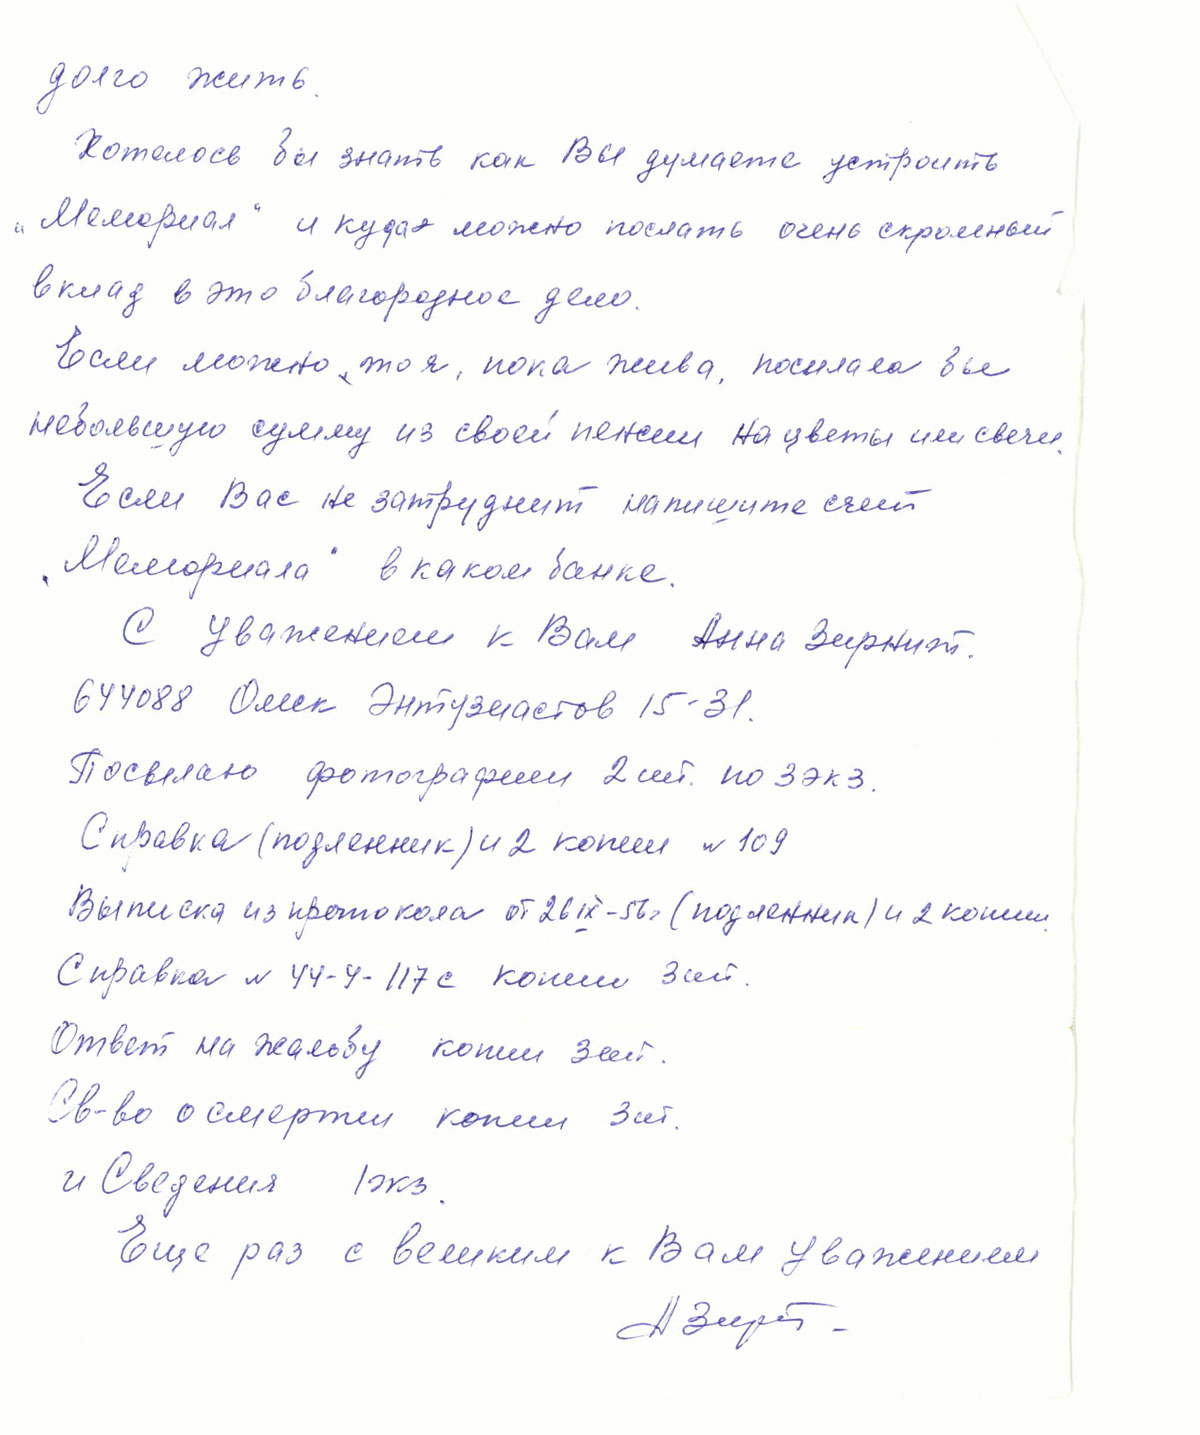 долго жить.
Хотелось бы знать как Вы думаете устроить
„Мемориал“ и куда можно послать очень скромный
вклад в это благородное дело.
Если можно, то я, пока жива, посылала бы
небольшую сумму из своей пенсии на цветы или свечи.
Если Вас не затруднит напишите счет
„Мемориала“ в каком банке.
С уважением к Вам Анна Зирнит.
644088 Омск Энтузиастов 15-31.
Посылаю фотографии 2 шт. по 3 экз.
Справка (подленник) и 2 копии № 109
Выписка из протокола от 26 IX-56г (подленник) и 2 копии.
Справка № 44-у-117с копии 3 шт.
Ответ на жалобу копии 3 шт.
Св-во о смерти копии 3 шт.
и Сведения 1 экз.
Еще раз с великим к Вам уважением
АЗирт-